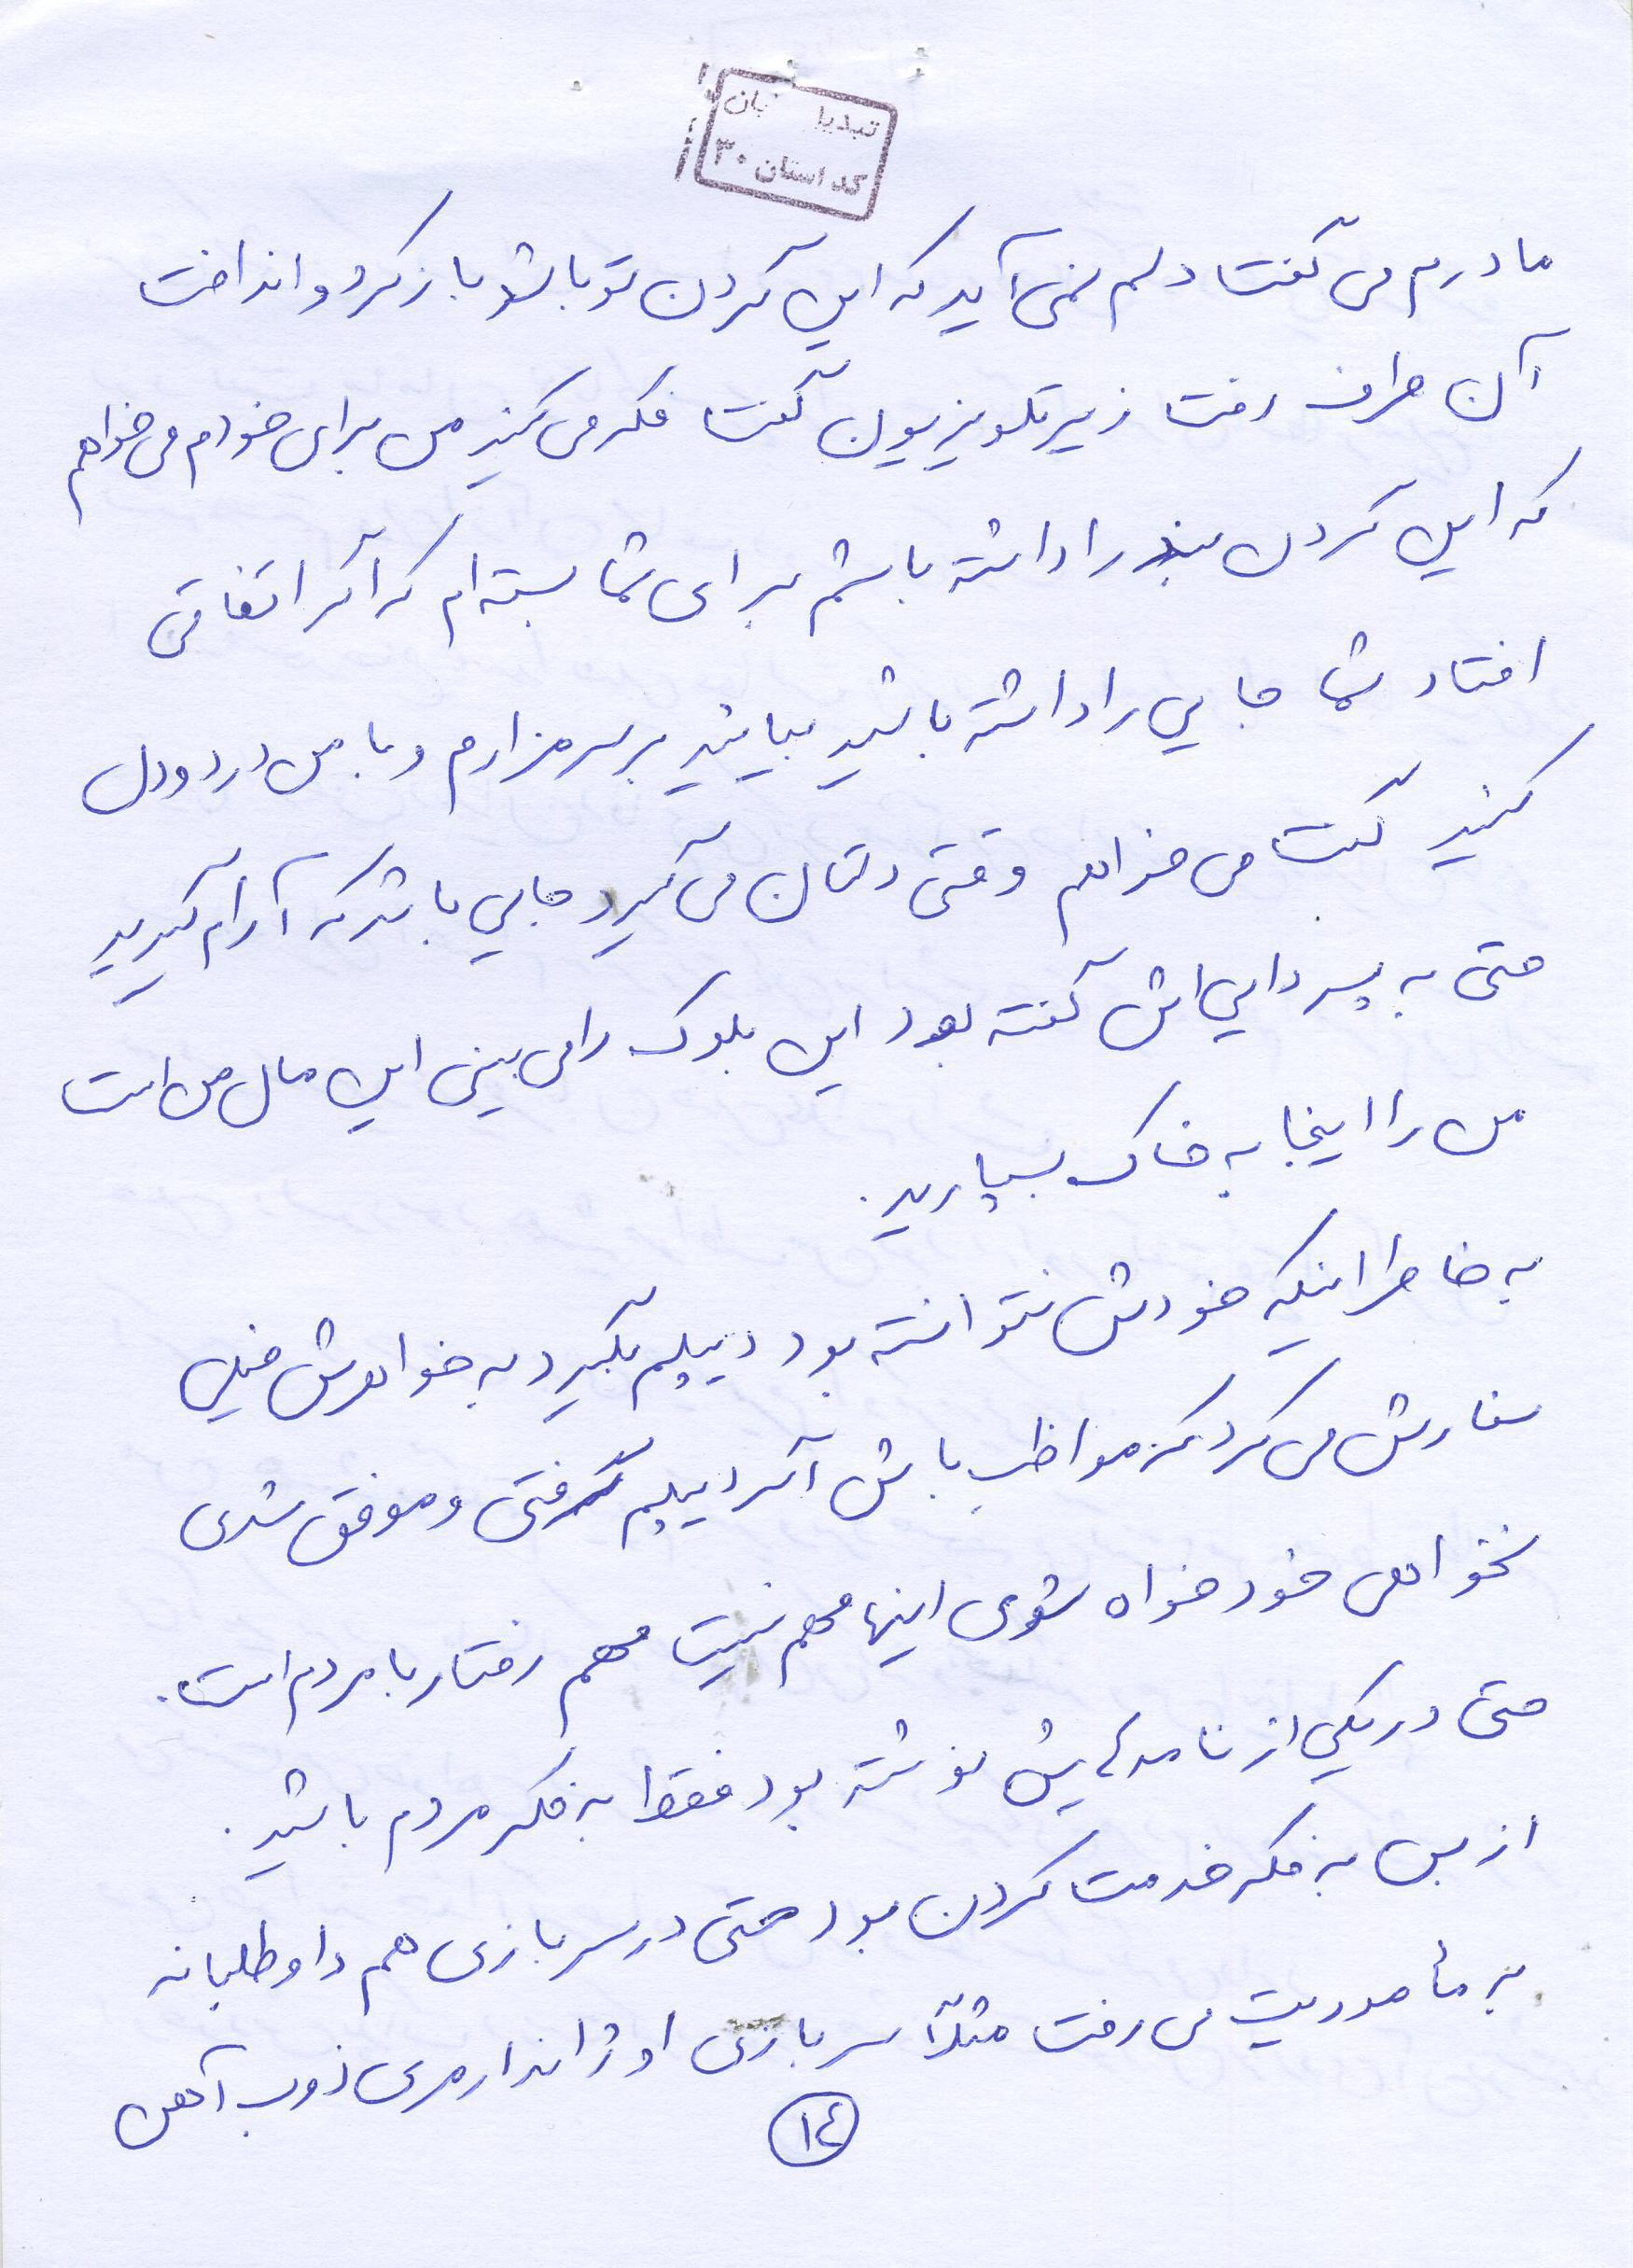 تبدیل بان
کد استان ۳۰
مادرم می گفت دلم نمی آید که این گردن تو باشد باز کرد و انداخت
آن طرف رفت زیر تلویزیون گفت فکر می کنید من برای خودم می خواهم
که این گردن بند را داشته باشم برای شما بسته ام که اگر اتفاقی
افتاد شما جایی را داشته باشید بیایید بر سر مزارم و با من درد و دل
کنید گفت می خواهم وقتی دلتان می گیرد جایی باشد که آرام گیرید
حتی به پسر دایی اش گفته بود این بلوک را می بینی این مال من است
من را اینجا به خاک بسپارید.
به خاطر اینکه خودش نتوانسته بود دیپلم بگیرد به خواهرش خیلی
سفارش می کرد که مواظب باش اگر دیپلم گرفتی و موفق شدی
نخواهی خودخواه شوی اینها مهم نیست مهم رفتار با مردم است.
حتی در یکی از نامه هایش نوشته بود فقط به فکر مردم باشید.
از بس به فکر خدمت کردن بود حتی در سربازی هم داوطلبانه
به مأموریت می رفت مثلاً سربازی او ژاندارمری ذوب آهن
۱٤